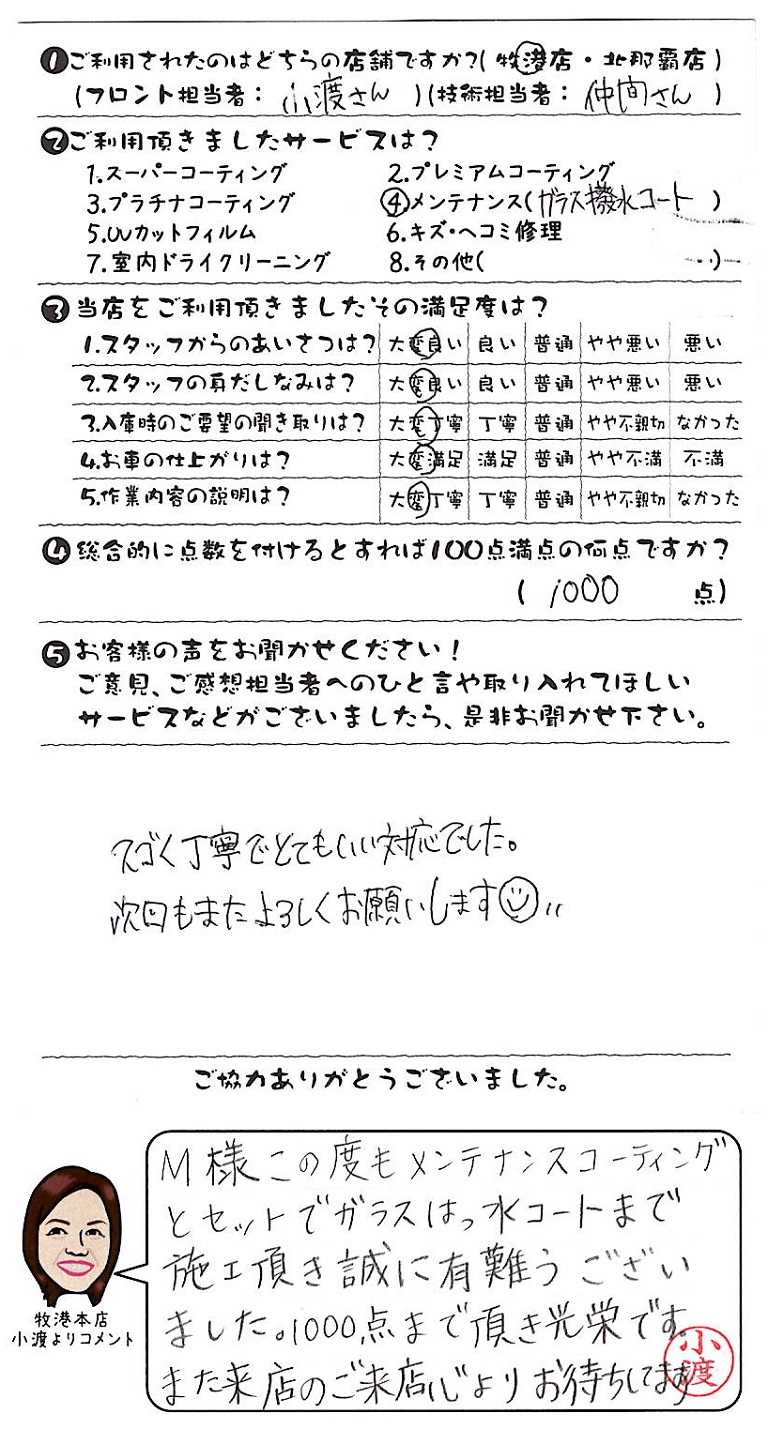 ❶ご利用されたのはどちらの店舗ですか?(牧港店・北那覇店)
(フロント担当者: 小渡さん )(技術担当者: 仲間さん )
❷ご利用頂きましたサービスは?
1.スーパーコーティング 2.プレミアムコーティング
3.プラチナコーティング ④メンテナンス(ガラス撥水コート )
5.UVカットフィルム 6.キズ・ヘコミ修理
7.室内ドライクリーニング 8.その他( )
❸当店をご利用頂きましたその満足度は?
1.スタッフからのあいさつは? 大変良い 良い 普通 やや悪い 悪い
2.スタッフの身だしなみは? 大変良い 良い 普通 やや悪い 悪い
3.入庫時のご要望の聞き取りは? 大変丁寧 丁寧 普通 やや不親切 なかった
4.お車の仕上がりは? 大変満足 満足 普通 やや不満 不満
5.作業内容の説明は? 大変丁寧 丁寧 普通 やや不親切 なかった
❹総合的に点数を付けるとすれば100点満点の何点ですか?
( 1000 点)
❺お客様の声をお聞かせください!
ご意見、ご感想担当者へのひと言や取り入れてほしい
サービスなどがございましたら、是非お聞かせ下さい。
スゴく丁寧でとてもいい対応でした。
次回もまたよろしくお願いします☺〃
ご協力ありがとうございました。
M様この度もメンテナンスコーティング
とセットでガラスはっ水コートまで
施工頂き誠に有難うござい
ました。1000点まで頂き光栄です。
また来店のご来店心よりお待ちしてます
小渡
牧港本店
小渡よりコメント